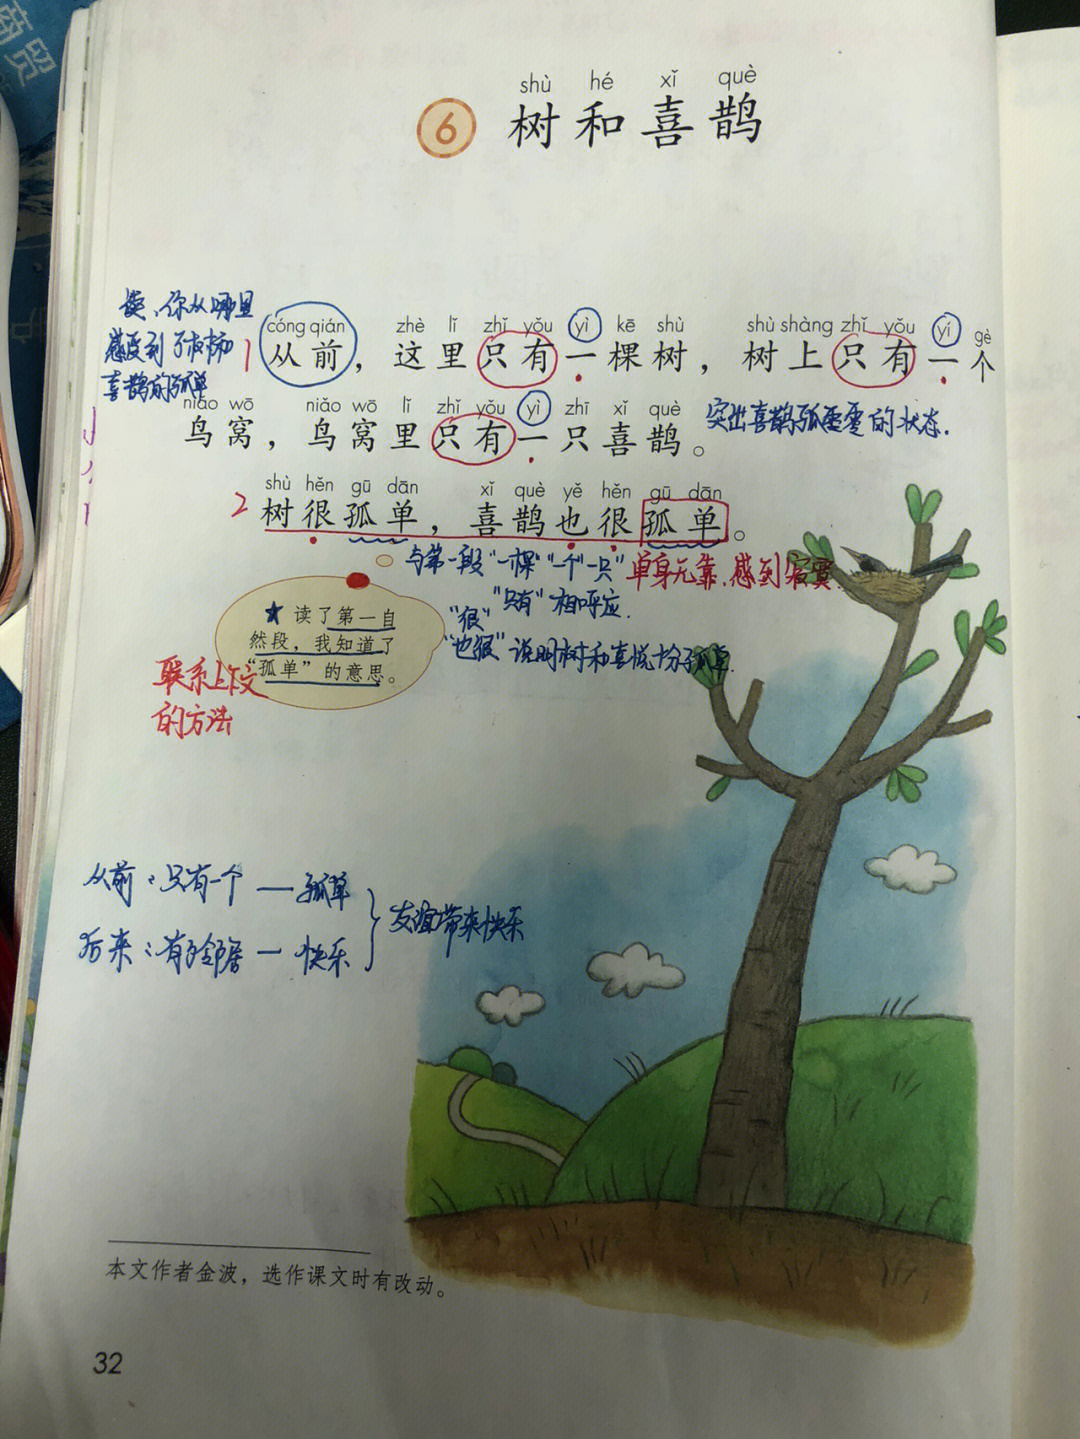 商贸
shù hé xǐ què
6 树和喜鹊
读、你从哪里
感受到了树和
喜鹊的孤单
cóng qián zhè lǐ zhǐ yǒu yì kē shù shù shàng zhǐ yǒu yí gè
1 从前，这里只有一棵树，树上只有一个
niǎo wō niǎo wō lǐ zhǐ yǒu yì zhī xǐ què
鸟窝，鸟窝里只有一只喜鹊。
突出喜鹊孤零零的状态.
shù hěn gū dān xǐ què yě hěn gū dān
2 树很孤单，喜鹊也很孤单。
与第一段"一棵""一个""一只"
"只有"相呼应.
单身无靠.感到寂寞.
"很"
"也很"说明树和喜鹊十分孤单.
★ 读了第一自
然段，我知道了
“孤单”的意思。
联系上下文
的方法
从前：只有一个 — 孤单
后来：有了邻居 — 快乐
} 友谊带来快乐
本文作者金波，选作课文时有改动。
32